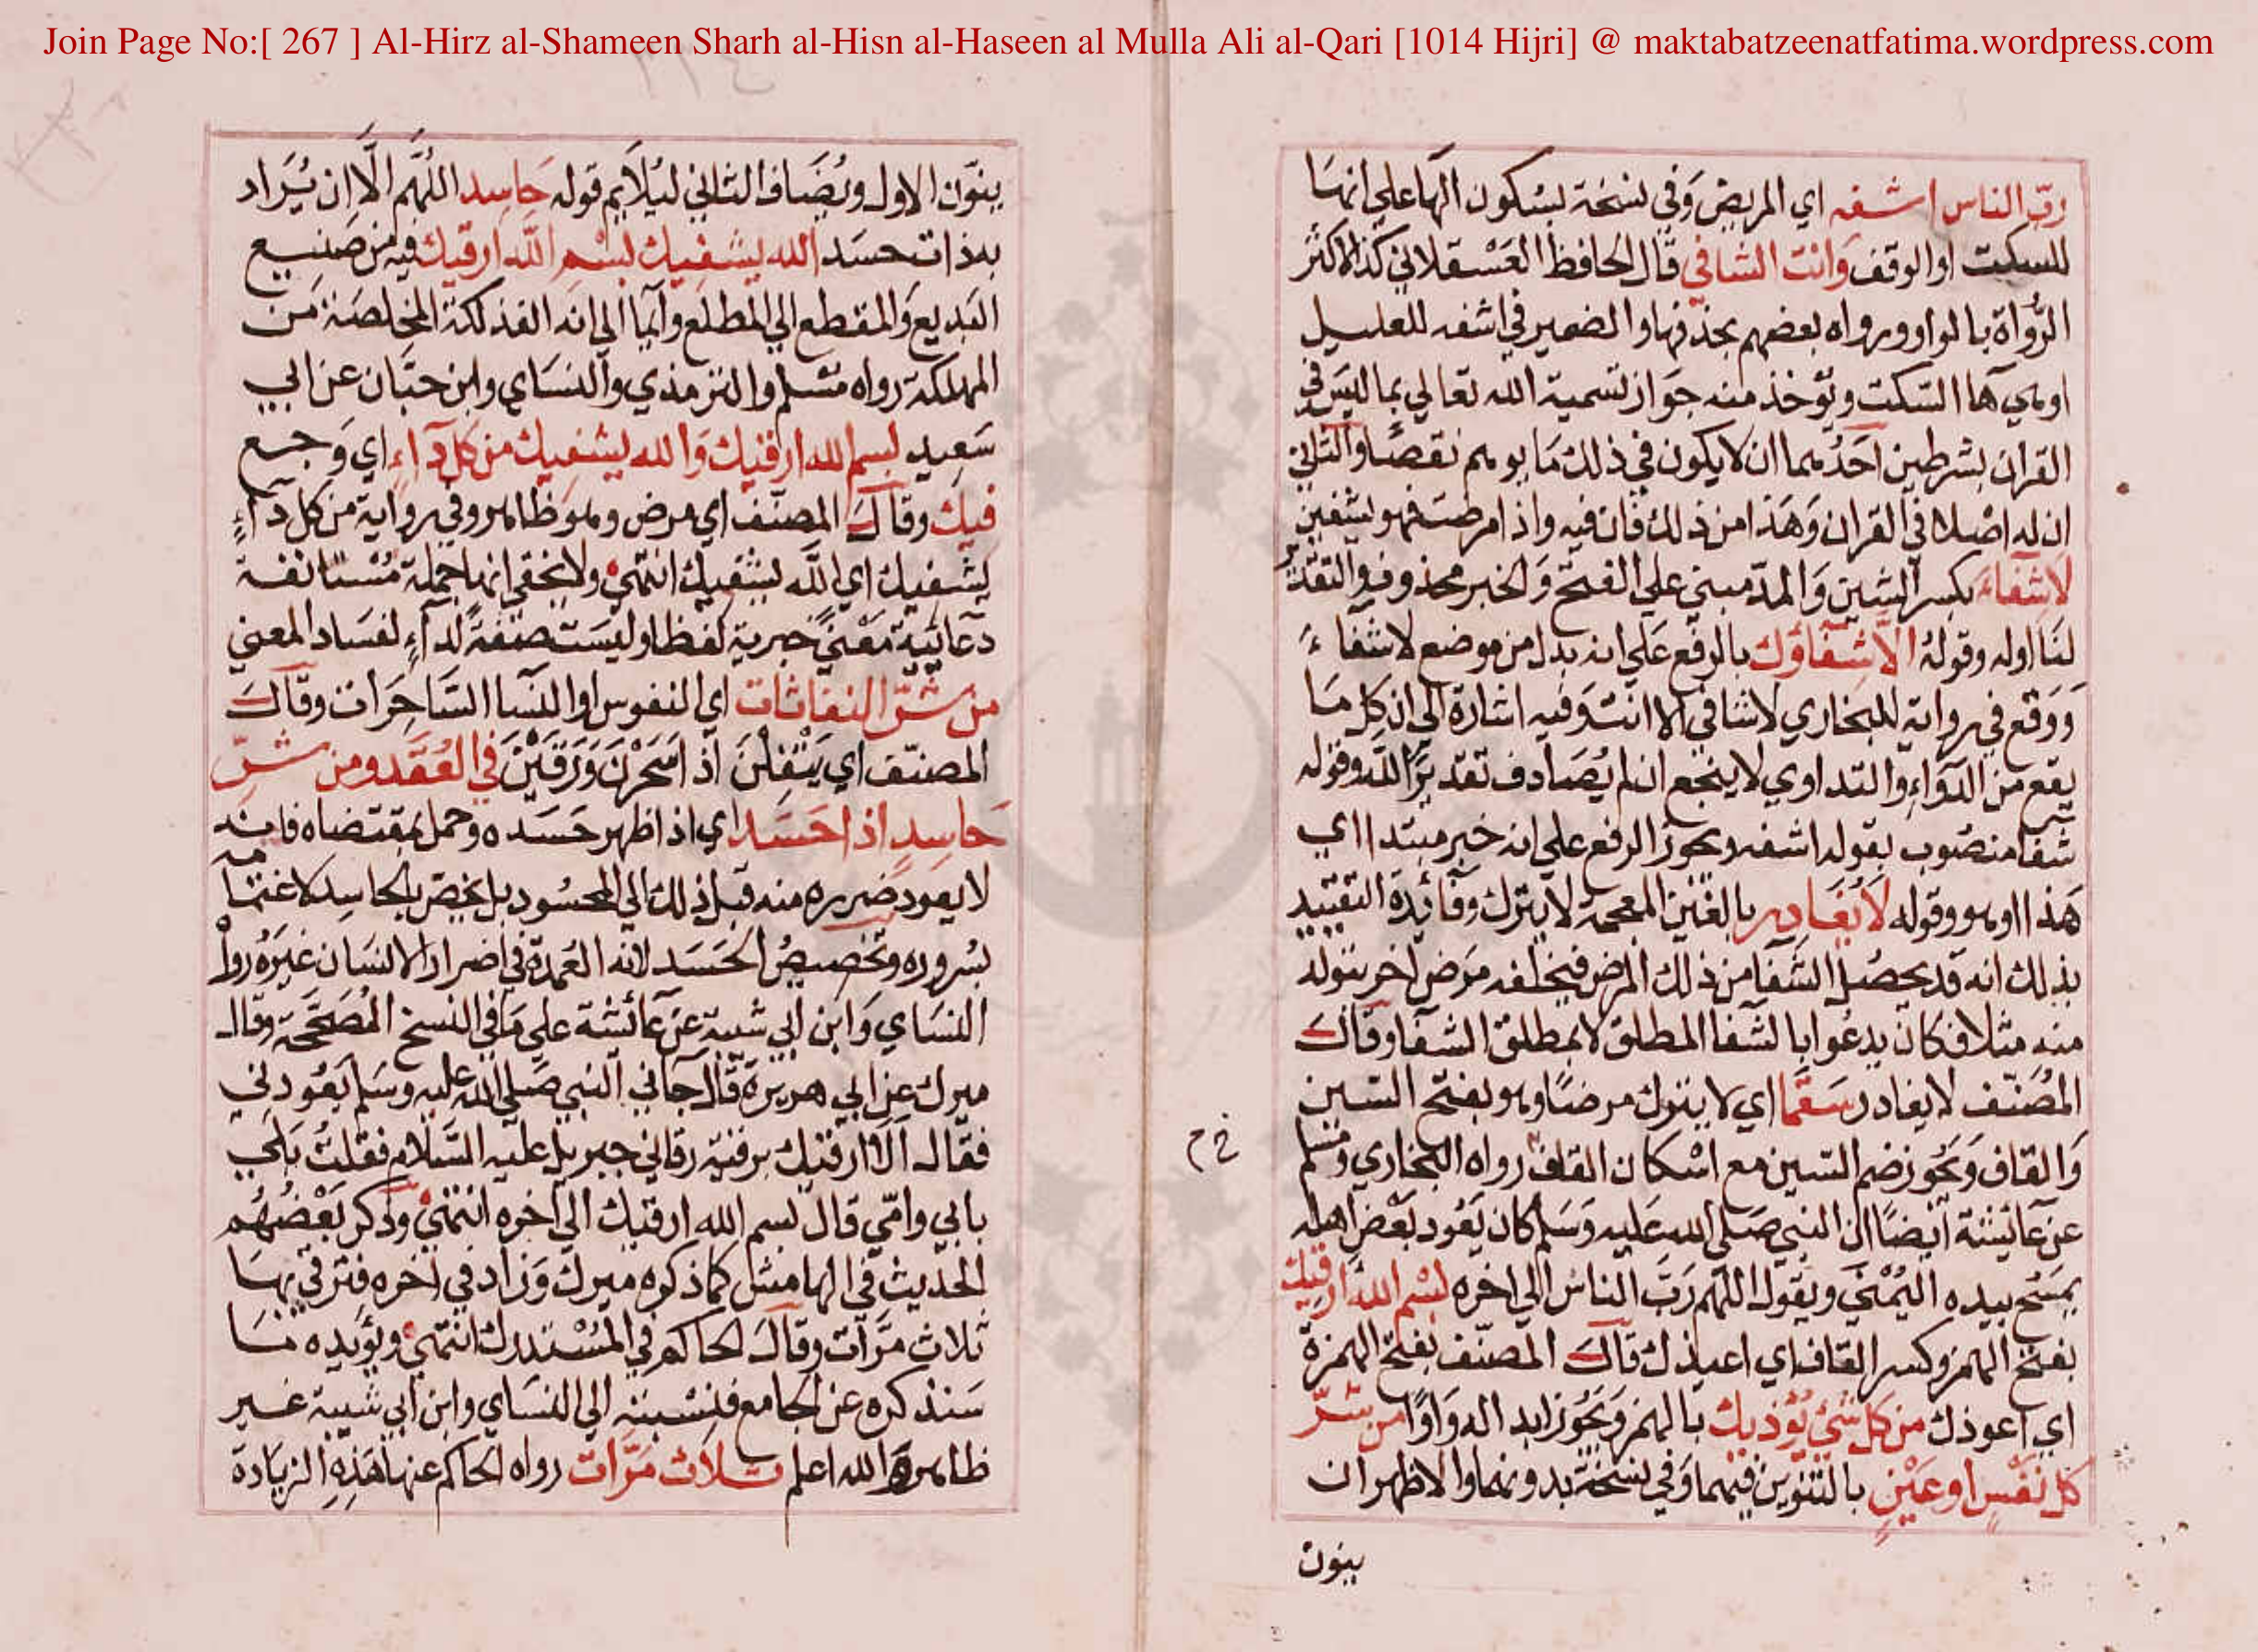 Join Page No:[ 267 ] Al-Hirz al-Shameen Sharh al-Hisn al-Haseen al Mulla Ali al-Qari [1014 Hijri] @ maktabatzeenatfatima.wordpress.com
ربّ الناس اشفه اي المريض وفي نسخة بسكون الها علي انها
للسكت او الوقف وانت الشافي قال الحافظ العسقلاني كذا لاكثر
الرواة بالواو ورواه بعضهم بحذفها والضمير في اشفه للعليل
او هي ها السكت ويؤخذ منه جواز تسمية الله تعالي بما ليس في
القران بشرطين احدهما ان لا يكون في ذلك ما يوهم نقصا والثاني
ان له اصلا في القران وهذا من ذلك فان فيه واذا مرضت فهو يشفين
لاشفاء بكسر الشين والمد مبني علي الفتح والخبر محذوف والتقدير
لنا اوله وقوله الا شفاؤك بالرفع علي انه بدل من موضع لا شفاء
ووقع في رواية للبخاري لا شافي الا انت وفيه اشارة الي ان كل ما
يقع من الدواء والتداوي لا ينجع ان لم يصادف تقدير الله وقوله
شفا منصوب بقوله اشفه ويجوز الرفع علي انه خبر مبتدا اي
هذا او هو وقوله لا يغادر بالغين المعجمة لا يترك وفائدة التقييد
بذلك انه قد يحصل الشفا من ذلك المرض فيخلفه مرض اخر يتولد
منه مثلا فكان يدعوا بالشفا المطلق لا بمطلق الشفا وقال
المصنف لا يغادر سقما اي لا يترك مرضا وهو بفتح السين
والقاف ويجوز ضم السين مع اسكان القاف رواه البخاري ومسلم
عن عائشة ايضا ان النبي صلي الله عليه وسلم كان يعود بعض اهله
يمسح بيده اليمني ويقول اللهم رب الناس الي اخره بسم الله ارقيك
بفتح الهمز وكسر القاف اي اعيذك قال المصنف بفتح الهمزة
اي اعوذك من كل شئ يؤذيك بالهمز ويجوز ابداله واوا من شر
كل نفس او عين بالتنوين فيهما وفي نسخة بدونهما والاظهر ان
بينون
ينون الاول ويضاف الثاني ليلايم قوله حاسد اللهم الا ان يراد
بذات حسد الله يشفيك بسم الله ارقيك فيه من صنيع
البديع والمقطع الي المطلع وايما الي انه الفذلكة المخلصة من
المهلكة رواه مسلم والترمذي والنساي وابن حبان عن ابي
سعيد بسم الله ارقيك والله يشفيك من كل داء اي وجع
فيك وقال المصنف اي مرض وهو ظاهر وفي رواية من كل داء
يشفيك اي الله يشفيك انتهي ولا يخفي انها جملة مستانفة
دعائية معني خبرية لفظا وليست صفة لداء لفساد المعني
من شر النفاثات اي النفوس او النسا الساحرات وقال
المصنف اي يتفلن اذا سحرن ورقين في العقد ومن شر
حاسد اذا حسد اي اذا ظهر حسده وحمل بمقتضاه فانه
لا يعود ضرره منه قبل ذلك الي المحسود بل يختص بالحاسد لاغتمامه
بسروره وتخصيص الحسد لانه العمدة في اضرار الانسان غيره رواه
النساي وابن ابي شيبة عن عائشة علي ما في النسخ المصححة وقال
ميرك عن ابي هريرة قال جاني النبي صلي الله عليه وسلم يعودني
فقال الا ارقيك برقية رقاني جبريل عليه السلام فقلت بلي
بابي وامي قال بسم الله ارقيك الي اخره انتهي وذكر بعضهم
الحديث في الهامش كما ذكره ميرك وزاد في اخره فترقي بها
ثلاث مرات وقال الحاكم في المستدرك انتهي ويؤيده ما
سنذكره عن الجامع فنسبته الي النساي وابن ابي شيبة غير
ظاهرة والله اعلم ثلاث مرات رواه الحاكم عنها هذه الزيادة